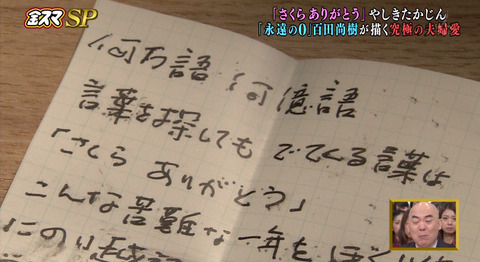 金スマSP
「さくら ありがとう」やしきたかじん
「永遠の0」百田尚樹が描く究極の夫婦愛
何万語 何億語
言葉を探しても でてくる言葉は
「さくら ありがとう」
こんな苦難な一年も